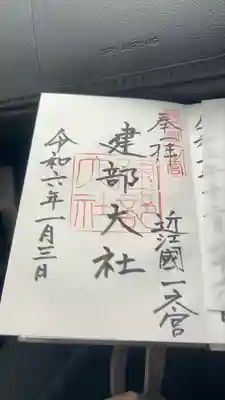 奉拝
近江國一之宮
建部大社
令和六年一月三日